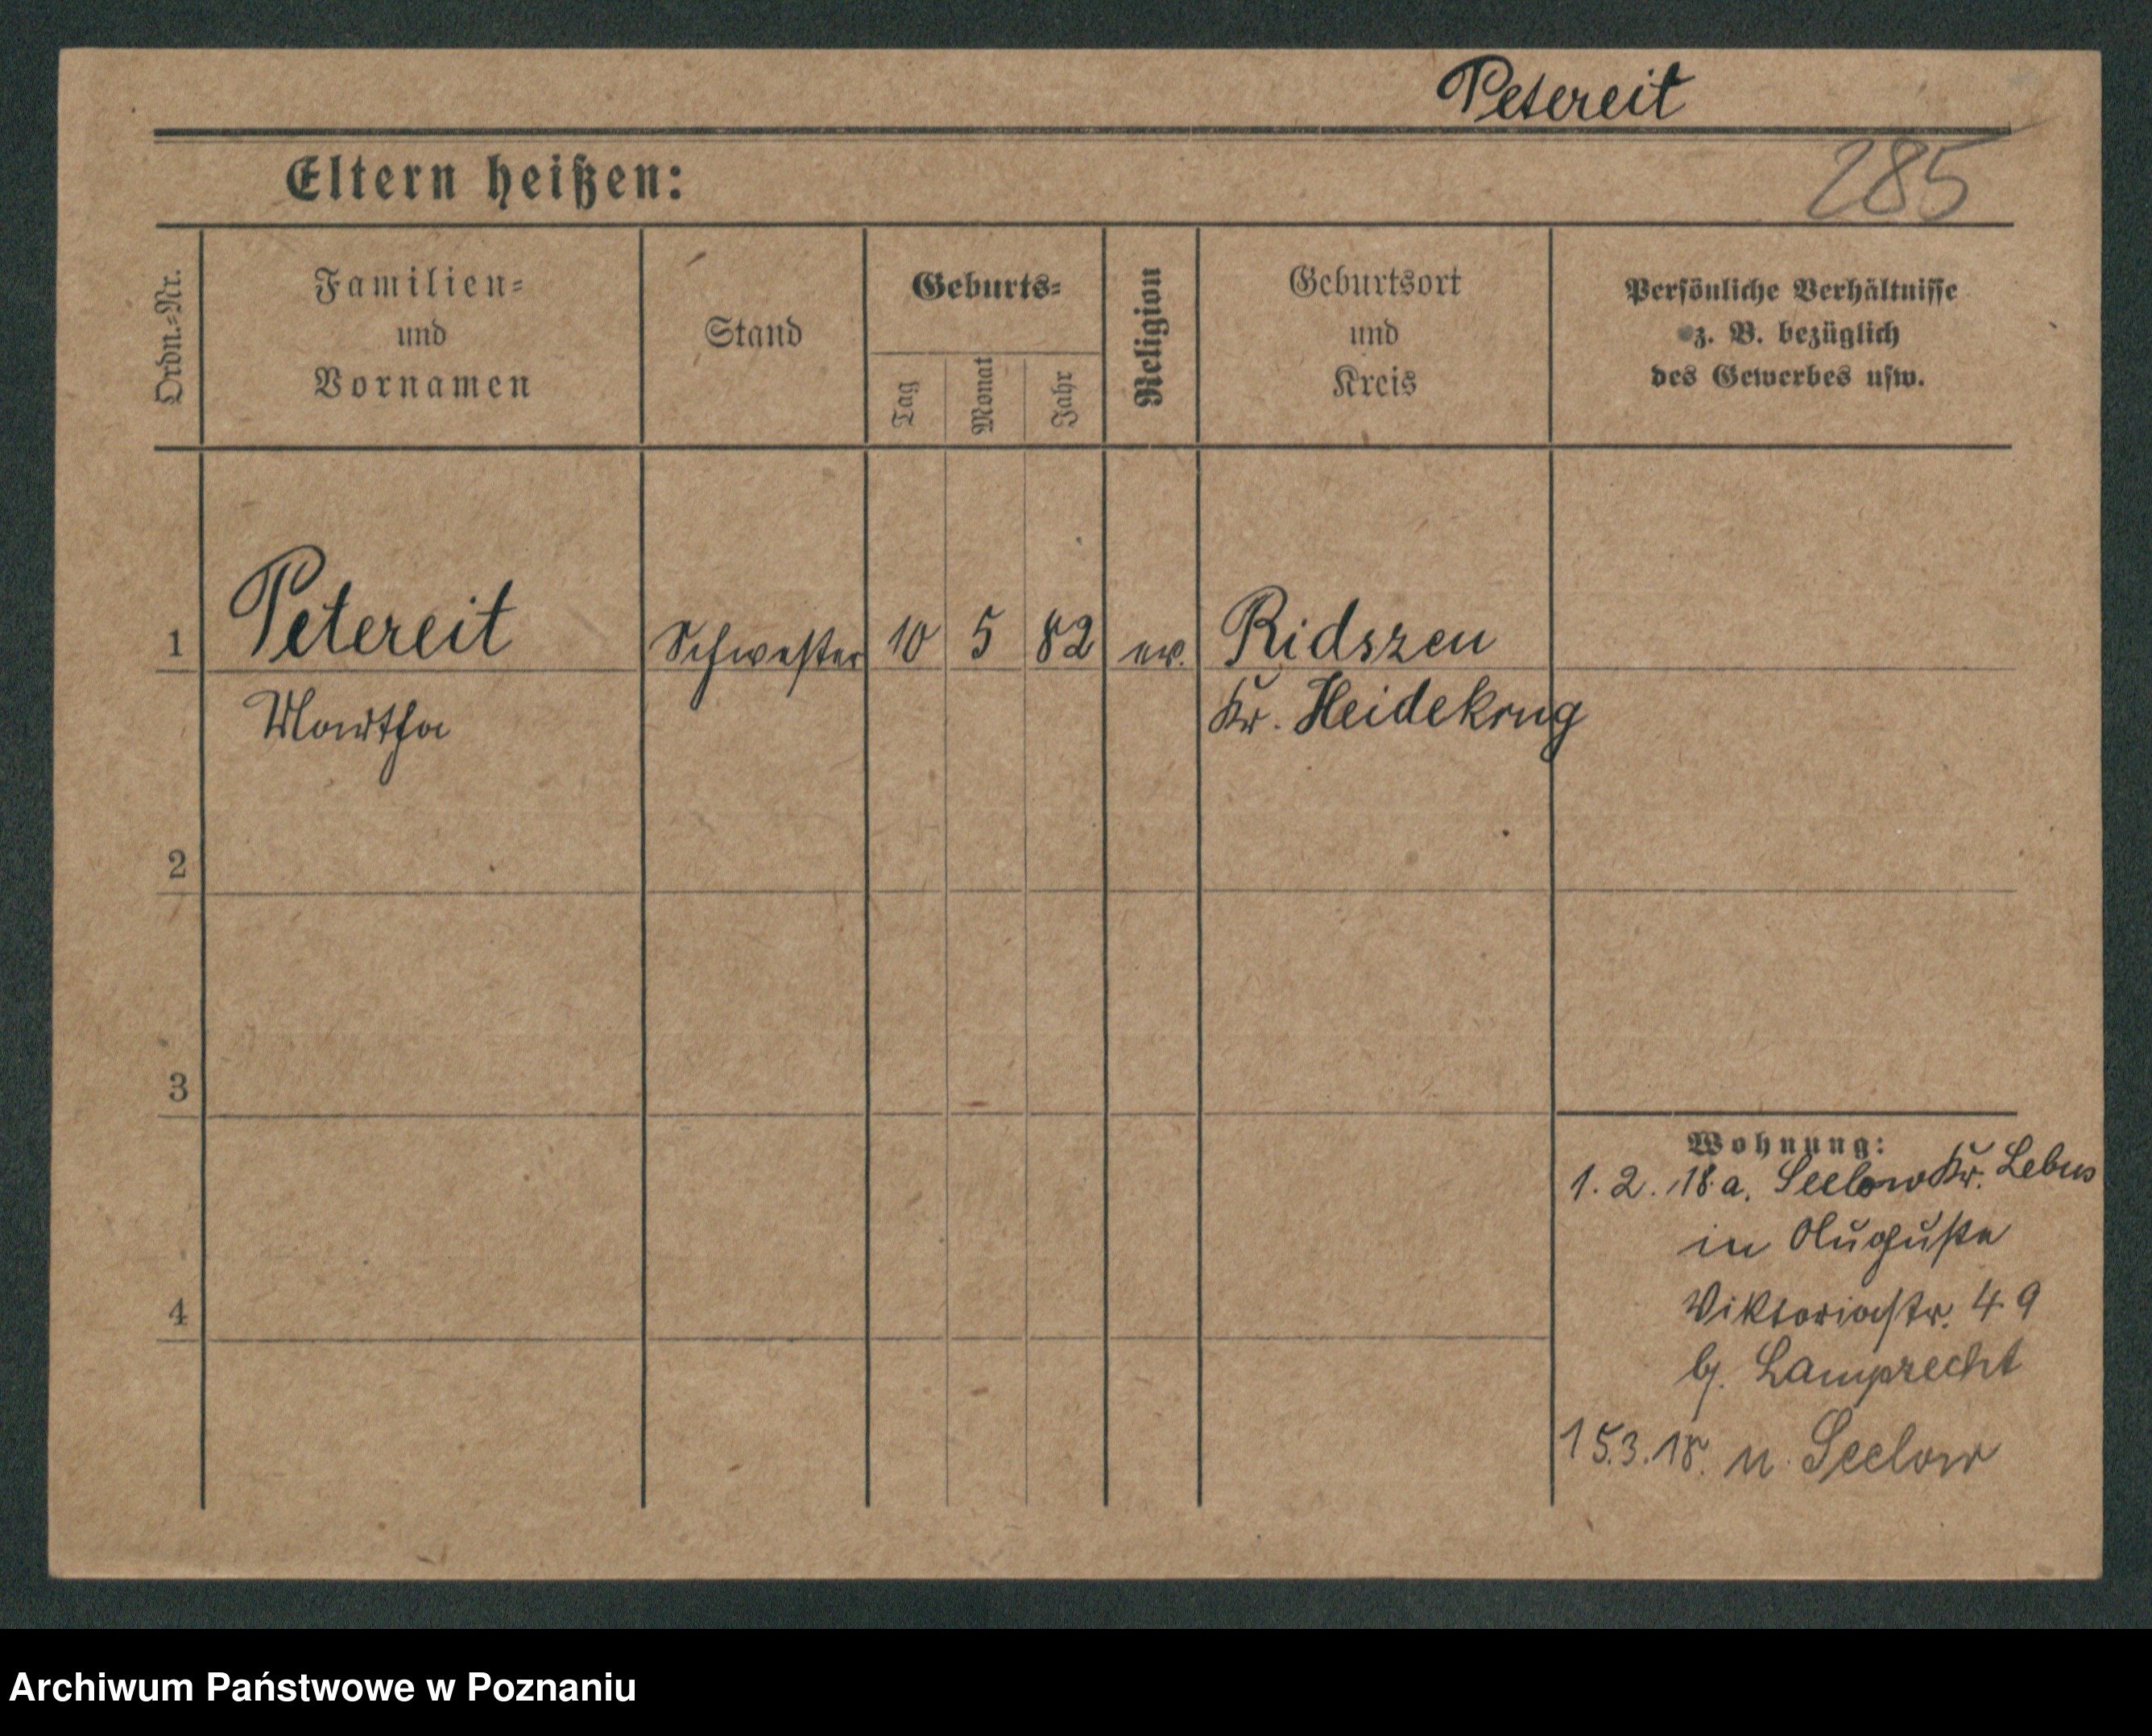 Petereit
Eltern heißen:
285
Ordn.=Nr.
Familien=
und
Vornamen
Stand
Geburts=
Tag
Monat
Jahr
Religion
Geburtsort
und
Kreis
Persönliche Verhältnisse
z. B. bezüglich
des Gewerbes usw.
1 Petereit Schwester 10 5 82 ev. Ridszen
Martha Kr. Heidekrug
2
3
Wohnung:
1. 2. 18. a. Seelow Kr. Lebus
in Auguste
4 Viktoriastr. 49
b. Lamprecht
15.3.18. n. Seelow
Archiwum Państwowe w Poznaniu